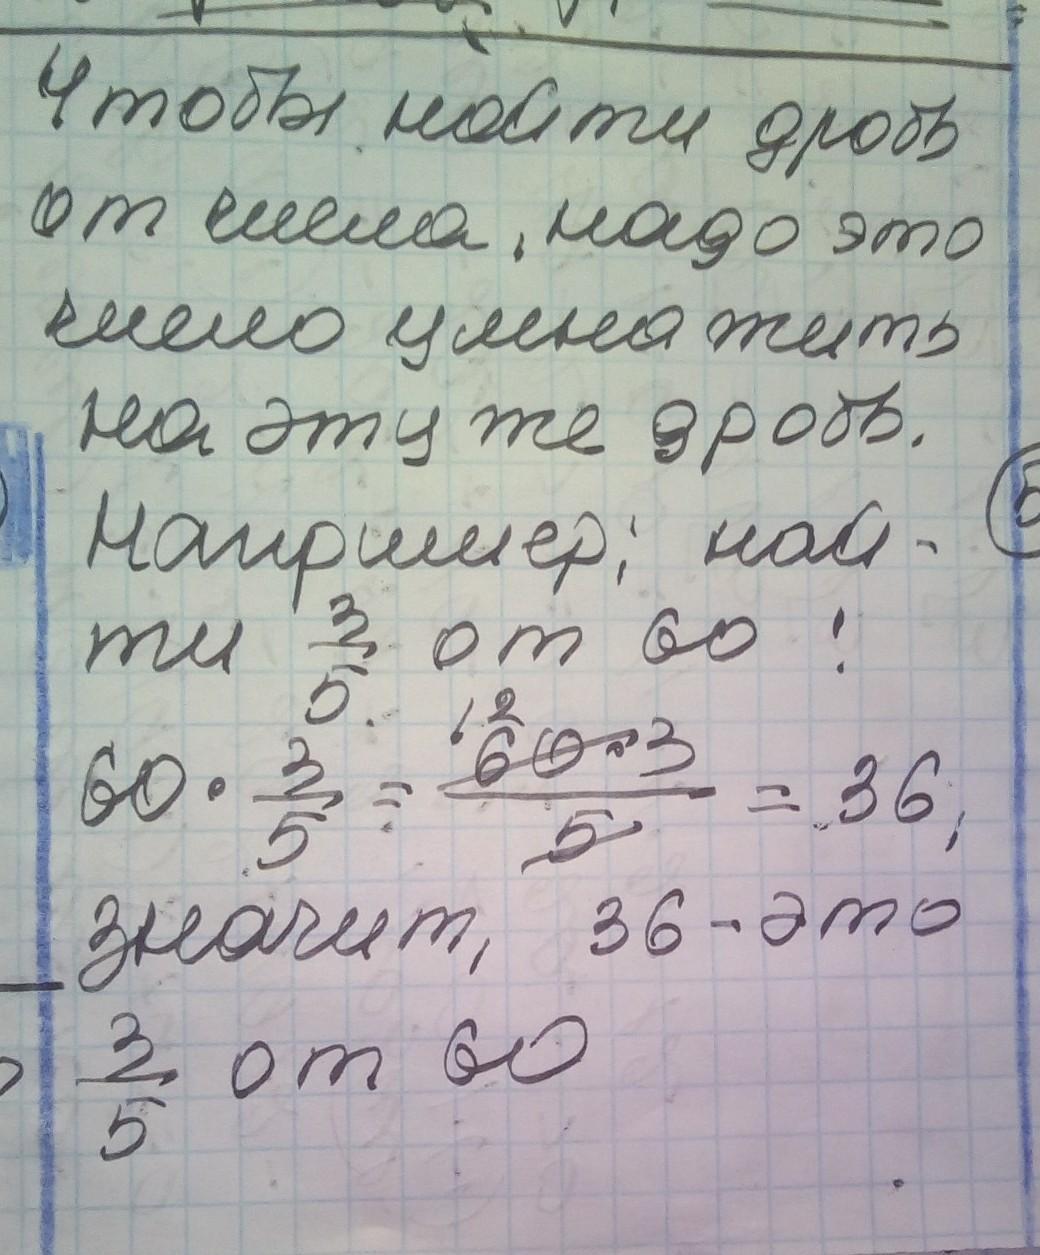 Чтобы найти дробь
от числа, надо это
число умножить
на эту же дробь.
Например; най-
ти 3/5 от 60!
60 · 3/5 = 12 60·3/5 = 36,
значит, 36 - это
3/5 от 60